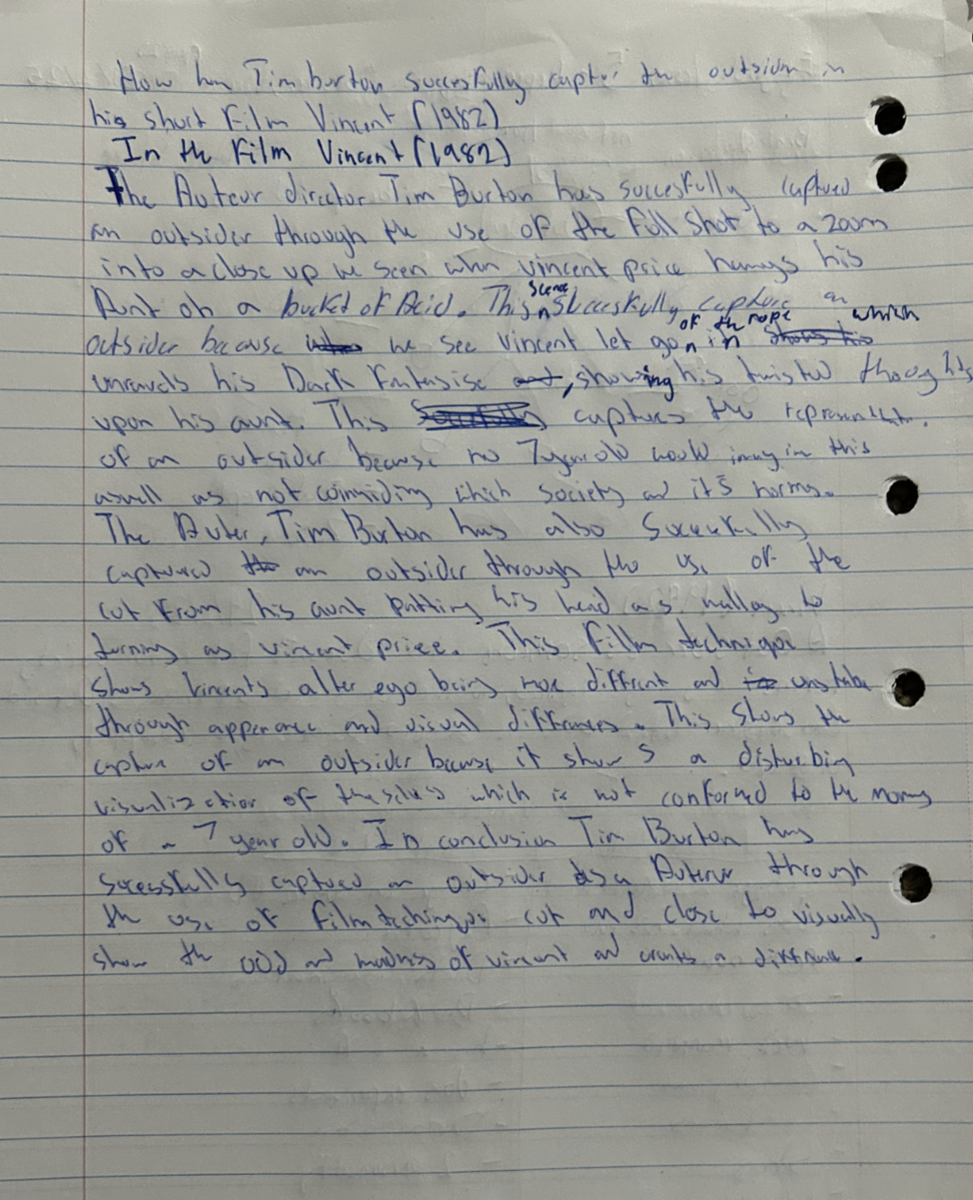 How has Tim burton succesfully captur the outsider in
his short Film Vincent (1982)
In the Film Vincent (1982)
The Auteur director Tim Burton has succesfully captured
an outsider through the use of the Full Shot to a zoom
into a close up we seen when vincent price hangs his
Aunt on a bucket of Acid. This scene successfully capture an
outsider because we see Vincent let go of the rope in which
unravels his Dark Fantasise, showing his twisted thoughts
upon his aunt. This captures the
of an outsider because no 7 year old would imagin this
aswell as not coinsiding which society and it's norms.
The Auter, Tim Burton has also Sucessfully
captured an outsider through the use of the
cut From his aunt putting his head as to
turning as vincent price. This Film technique
shows Vincents alter ego being more diffrent and unstable
through apperance and visual differnces. This shows the
capture of an outsider because it shows a disturbing
visualization of which is not conformed to the norms
of a 7 year old. In conclusion Tim Burton has
sucessfully captured an outsider as a Auterur through
the use of film cut and close to visually
show the odd and madness of vincent and a